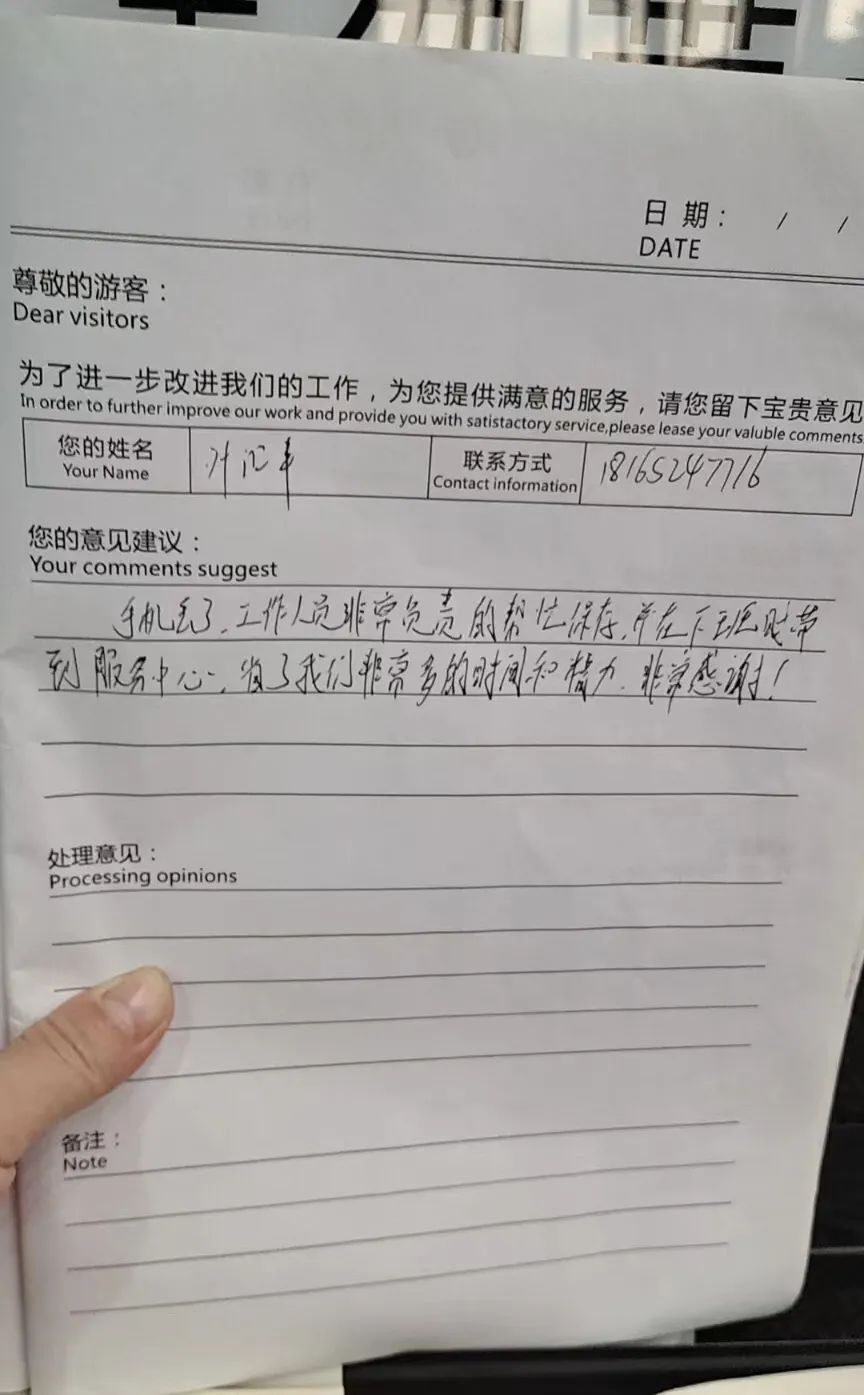 日 期： / /
DATE
尊敬的游客：
Dear visitors
为了进一步改进我们的工作，为您提供满意的服务，请您留下宝贵意见
In order to further improve our work and provide you with satistactory service,please lease your valuble comments
您的姓名 联系方式 18165247716
Your Name Contact information
您的意见建议：
Your comments suggest
手机丢了，工作人员非常负责的帮忙保存，并在下班时带
到服务中心，省了我们非常多的时间和精力，非常感谢！
处理意见：
Processing opinions
备注：
Note